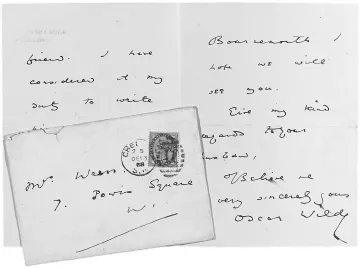 friend. I have
considered it my
duty to write
Bournemouth I
hope we will
see you.
Give my kind
regards to your
husband,
Believe me
very sincerely yours
Oscar Wilde
CHEL
DE 13
88
S.W.
Mrs Webb
7. Powis Square
W.